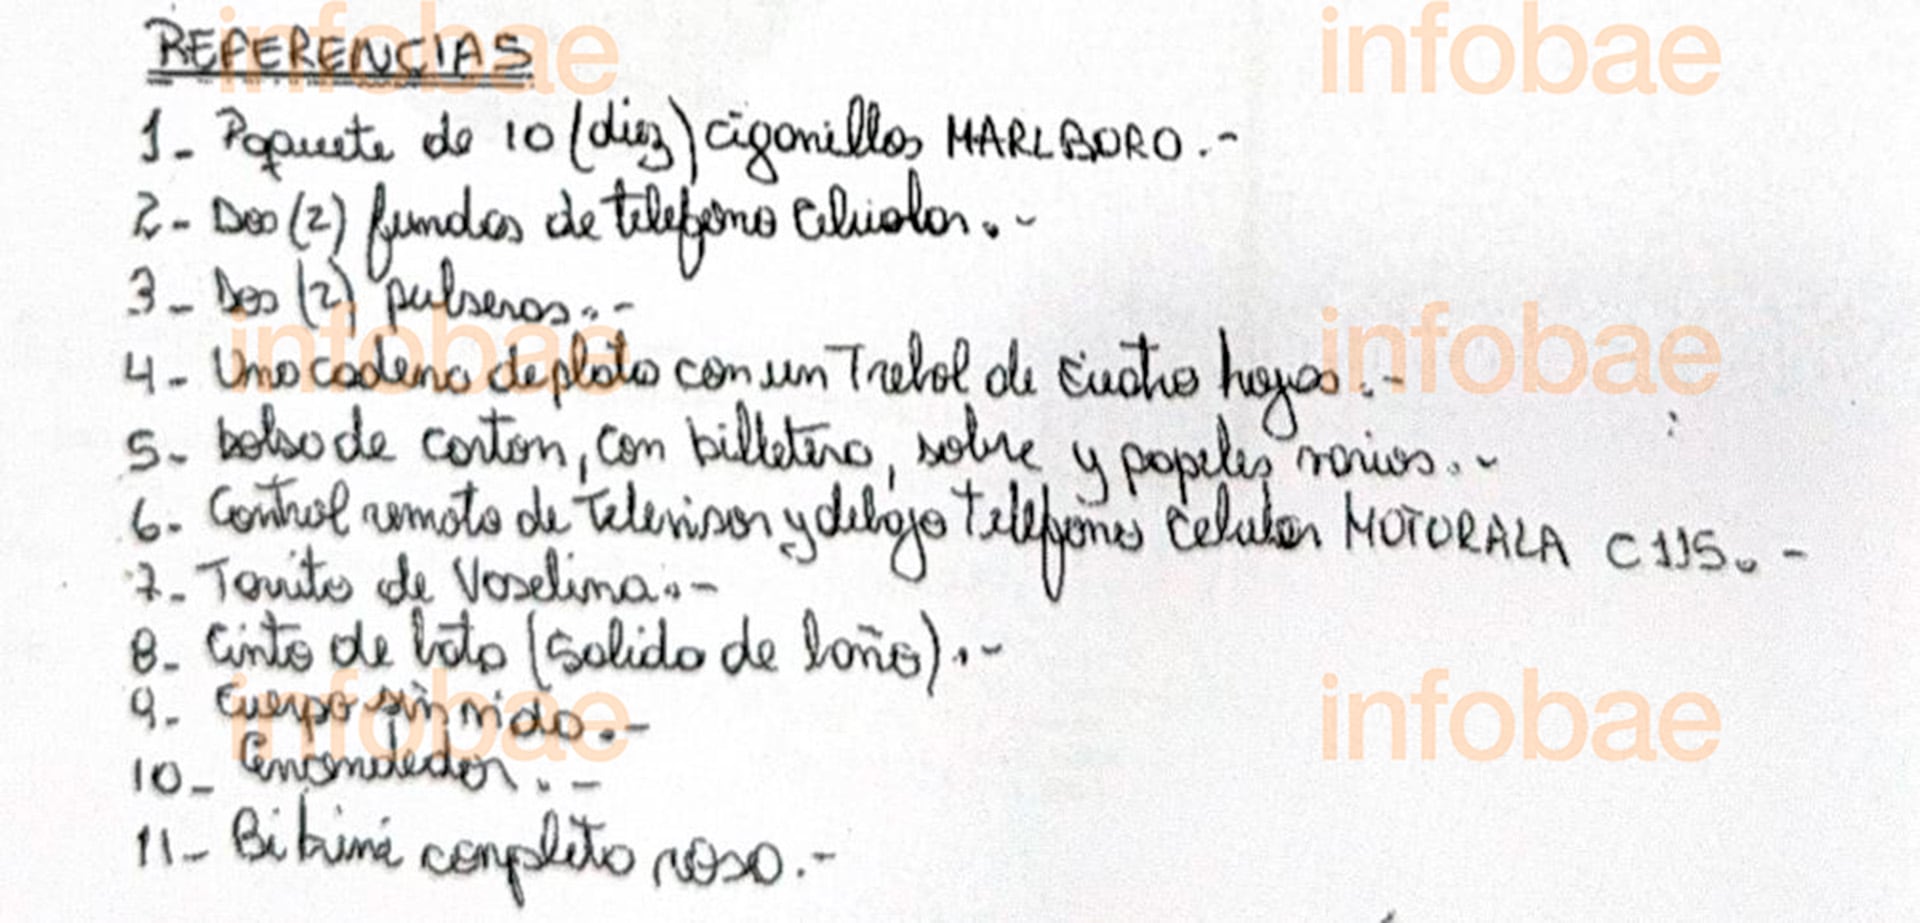 infobae infobae
REFERENCIAS
1- Paquete de 10 (diez) cigarrillos MARLBORO.-
2- Dos (2) fundas de telefono celular.-
3- Dos (2) pulseras.-
infobae infobae
4- Una cadena de plata con un Trebol de cuatro hojas.-
5- bolso de carton, con billetera, sobre y papeles varios.-
6- Control remoto de Televisor y debajo Telefono Celular MOTORALA C115.-
7- Tarrito de Vaselina.-
8- Cinto de bata (salida de baño).-
infobae infobae
9- Cuerpo sin vida.-
10- Encendedor.-
11- Bikini completo rosa.-